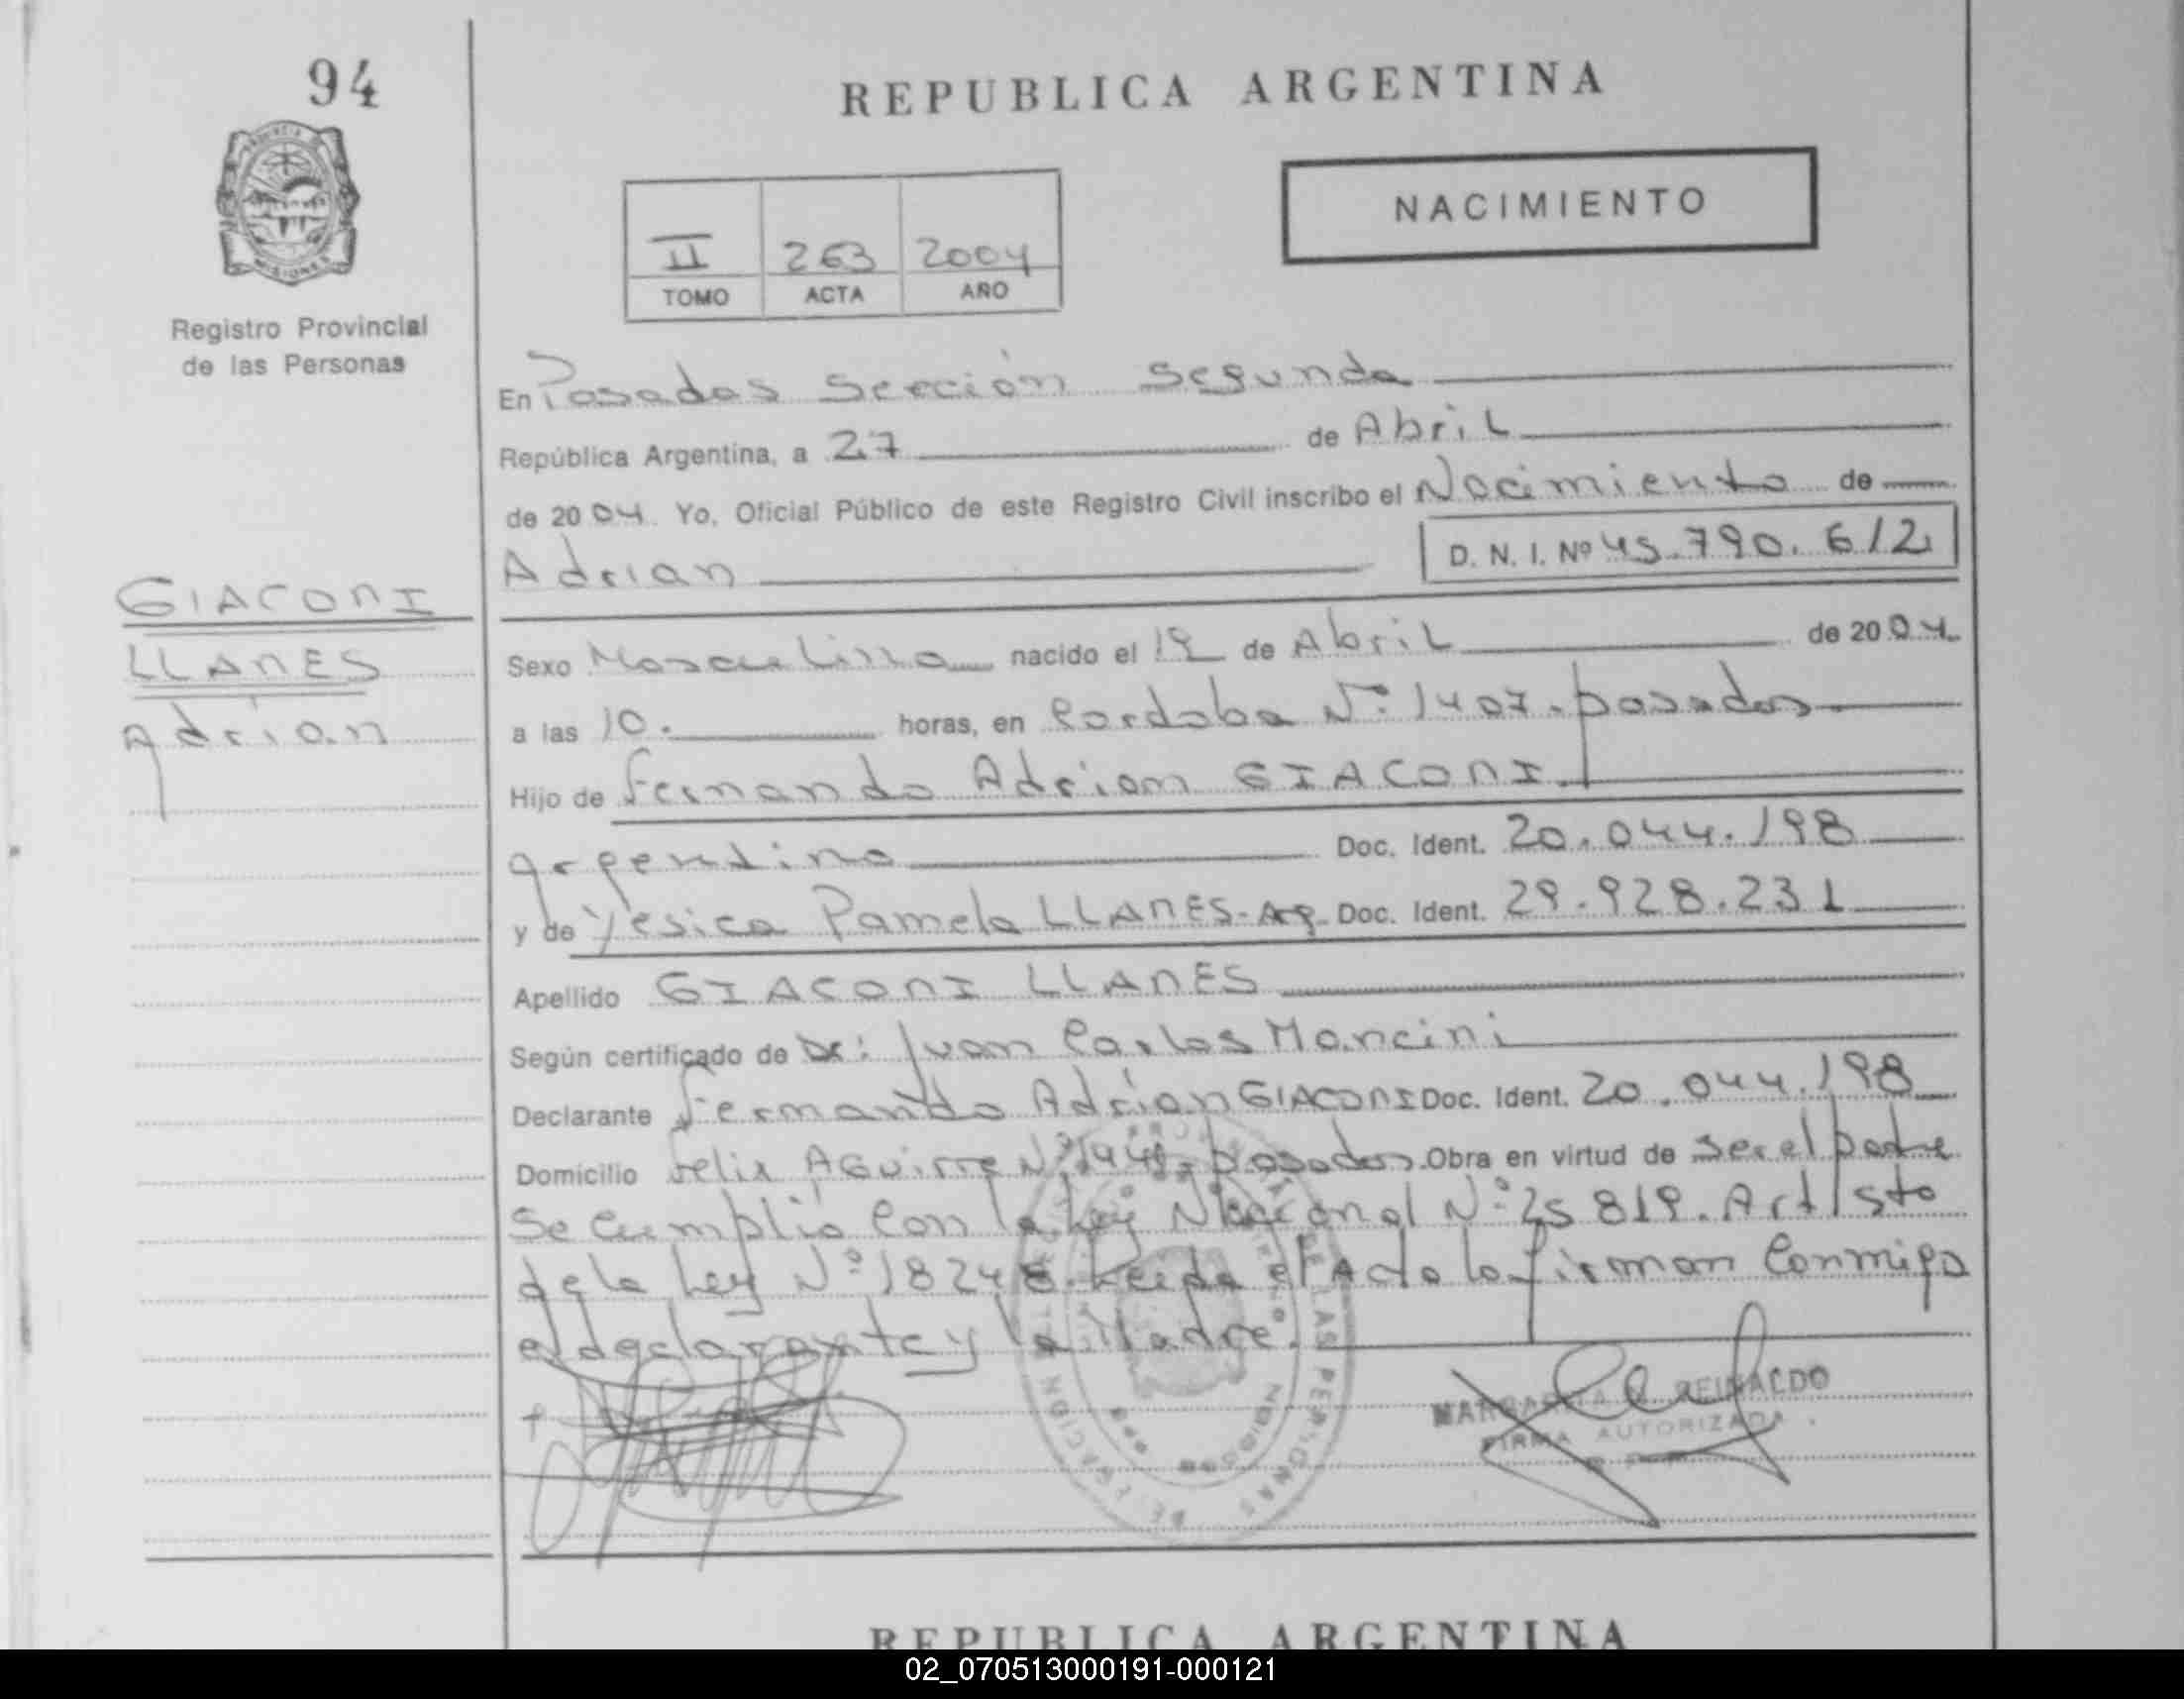 94
REPUBLICA ARGENTINA
NACIMIENTO
II 263 2004
TOMO ACTA AÑO
Registro Provincial
de las Personas
En Posadas Sección Segunda
República Argentina, a 27 de Abril
de 2004 Yo, Oficial Público de este Registro Civil inscribo el Nacimiento de
Adrian D. N. I. Nº 45.790.612
GIACONI
LLANES
Adrian
Sexo Masculino nacido el 19 de Abril de 2004
a las 10. horas, en Cordoba Nº 1407. posadas
Hijo de Fernando Adrian GIACONI.
argentino Doc. Ident. 20.044.198
y de Yesica Pamela LLANES-Arg. Doc. Ident. 29.928.231
Apellido GIACONI LLANES
Según certificado de Dr: Juan Carlos Mancini
Declarante Fernando Adrian GIACONI Doc. Ident. 20.044.198
Domicilio Felix AGuirre Nº posadas. Obra en virtud de ser el padre
Se cumplió con la Ley Nacional Nº 25819. Art 1sto
de la Ley Nº 18248. Leida el Acta la firman conmigo
el declarante y la Madre.
MARGARITA REINALDO
FIRMA AUTORIZADA
REPUBLICA ARGENTINA
02_070513000191-000121